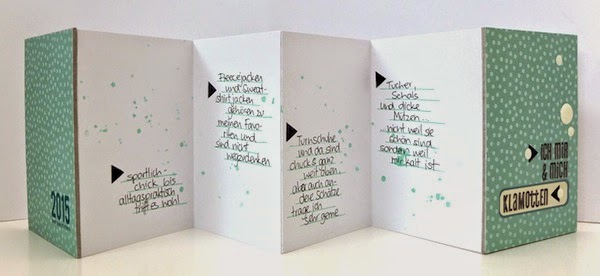 2015
sportlich-
chick bis
alltagspraktisch
trifft's wohl
Fleecejacken
und Sweat-
shirtjacken
gehören zu
meinen Favo-
riten und
sind nicht
wegzudenken
Turnschuhe
und da sind
chuck's ganz
weit oben
aber auch an-
dere Schätze
trage ich
sehr gerne
Tücher,
Schals
und dicke
Mützen...
nicht weil sie
schön sind
sondern weil
mir kalt ist
ICH MIR
& MICH
KLAMOTTEN